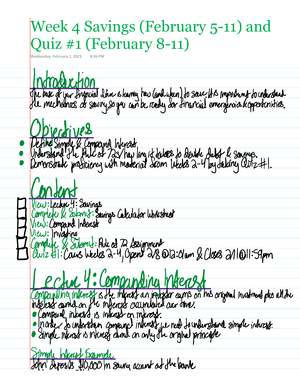 Week 4 Savings (February 5-11) and
Quiz #1 (February 8-11)
Wednesday, February 1, 2023 8:36 PM
Introduction
One part of your financial live is learning how (and when) to save. It's important to understand
the mechanics of saving so you can be ready for financial emergencies & opportunities.
Objectives
Define Simple & Compound Interest.
Understand the Rule of 72/how long it takes to double debt & savings.
Demonstrate proficiency with material from Weeks 2-4 by taking Quiz #1.
Content
View: Lecture 4: Savings
Complete & Submit: Savings Calculator Worksheet
View: Compound Interest
View: Investing
Complete & Submit: Rule of 72 Assignment
Quiz #1: Covers Weeks 2-4, Opens 2/8 @12:01am & Closes 2/11 @11:59pm
Lecture 4: Compounding Interest
Compounding interest is the interest an investor earns on his original investment plus all the
interest earned on the interest accumulated over time.
Compound interest is interest on interest.
In order to understand compound interest we need to understand simple interest.
Simple interest is interest earned on only the original principle
Simple Interest Example
John deposits $10,000 in saving account at the bank